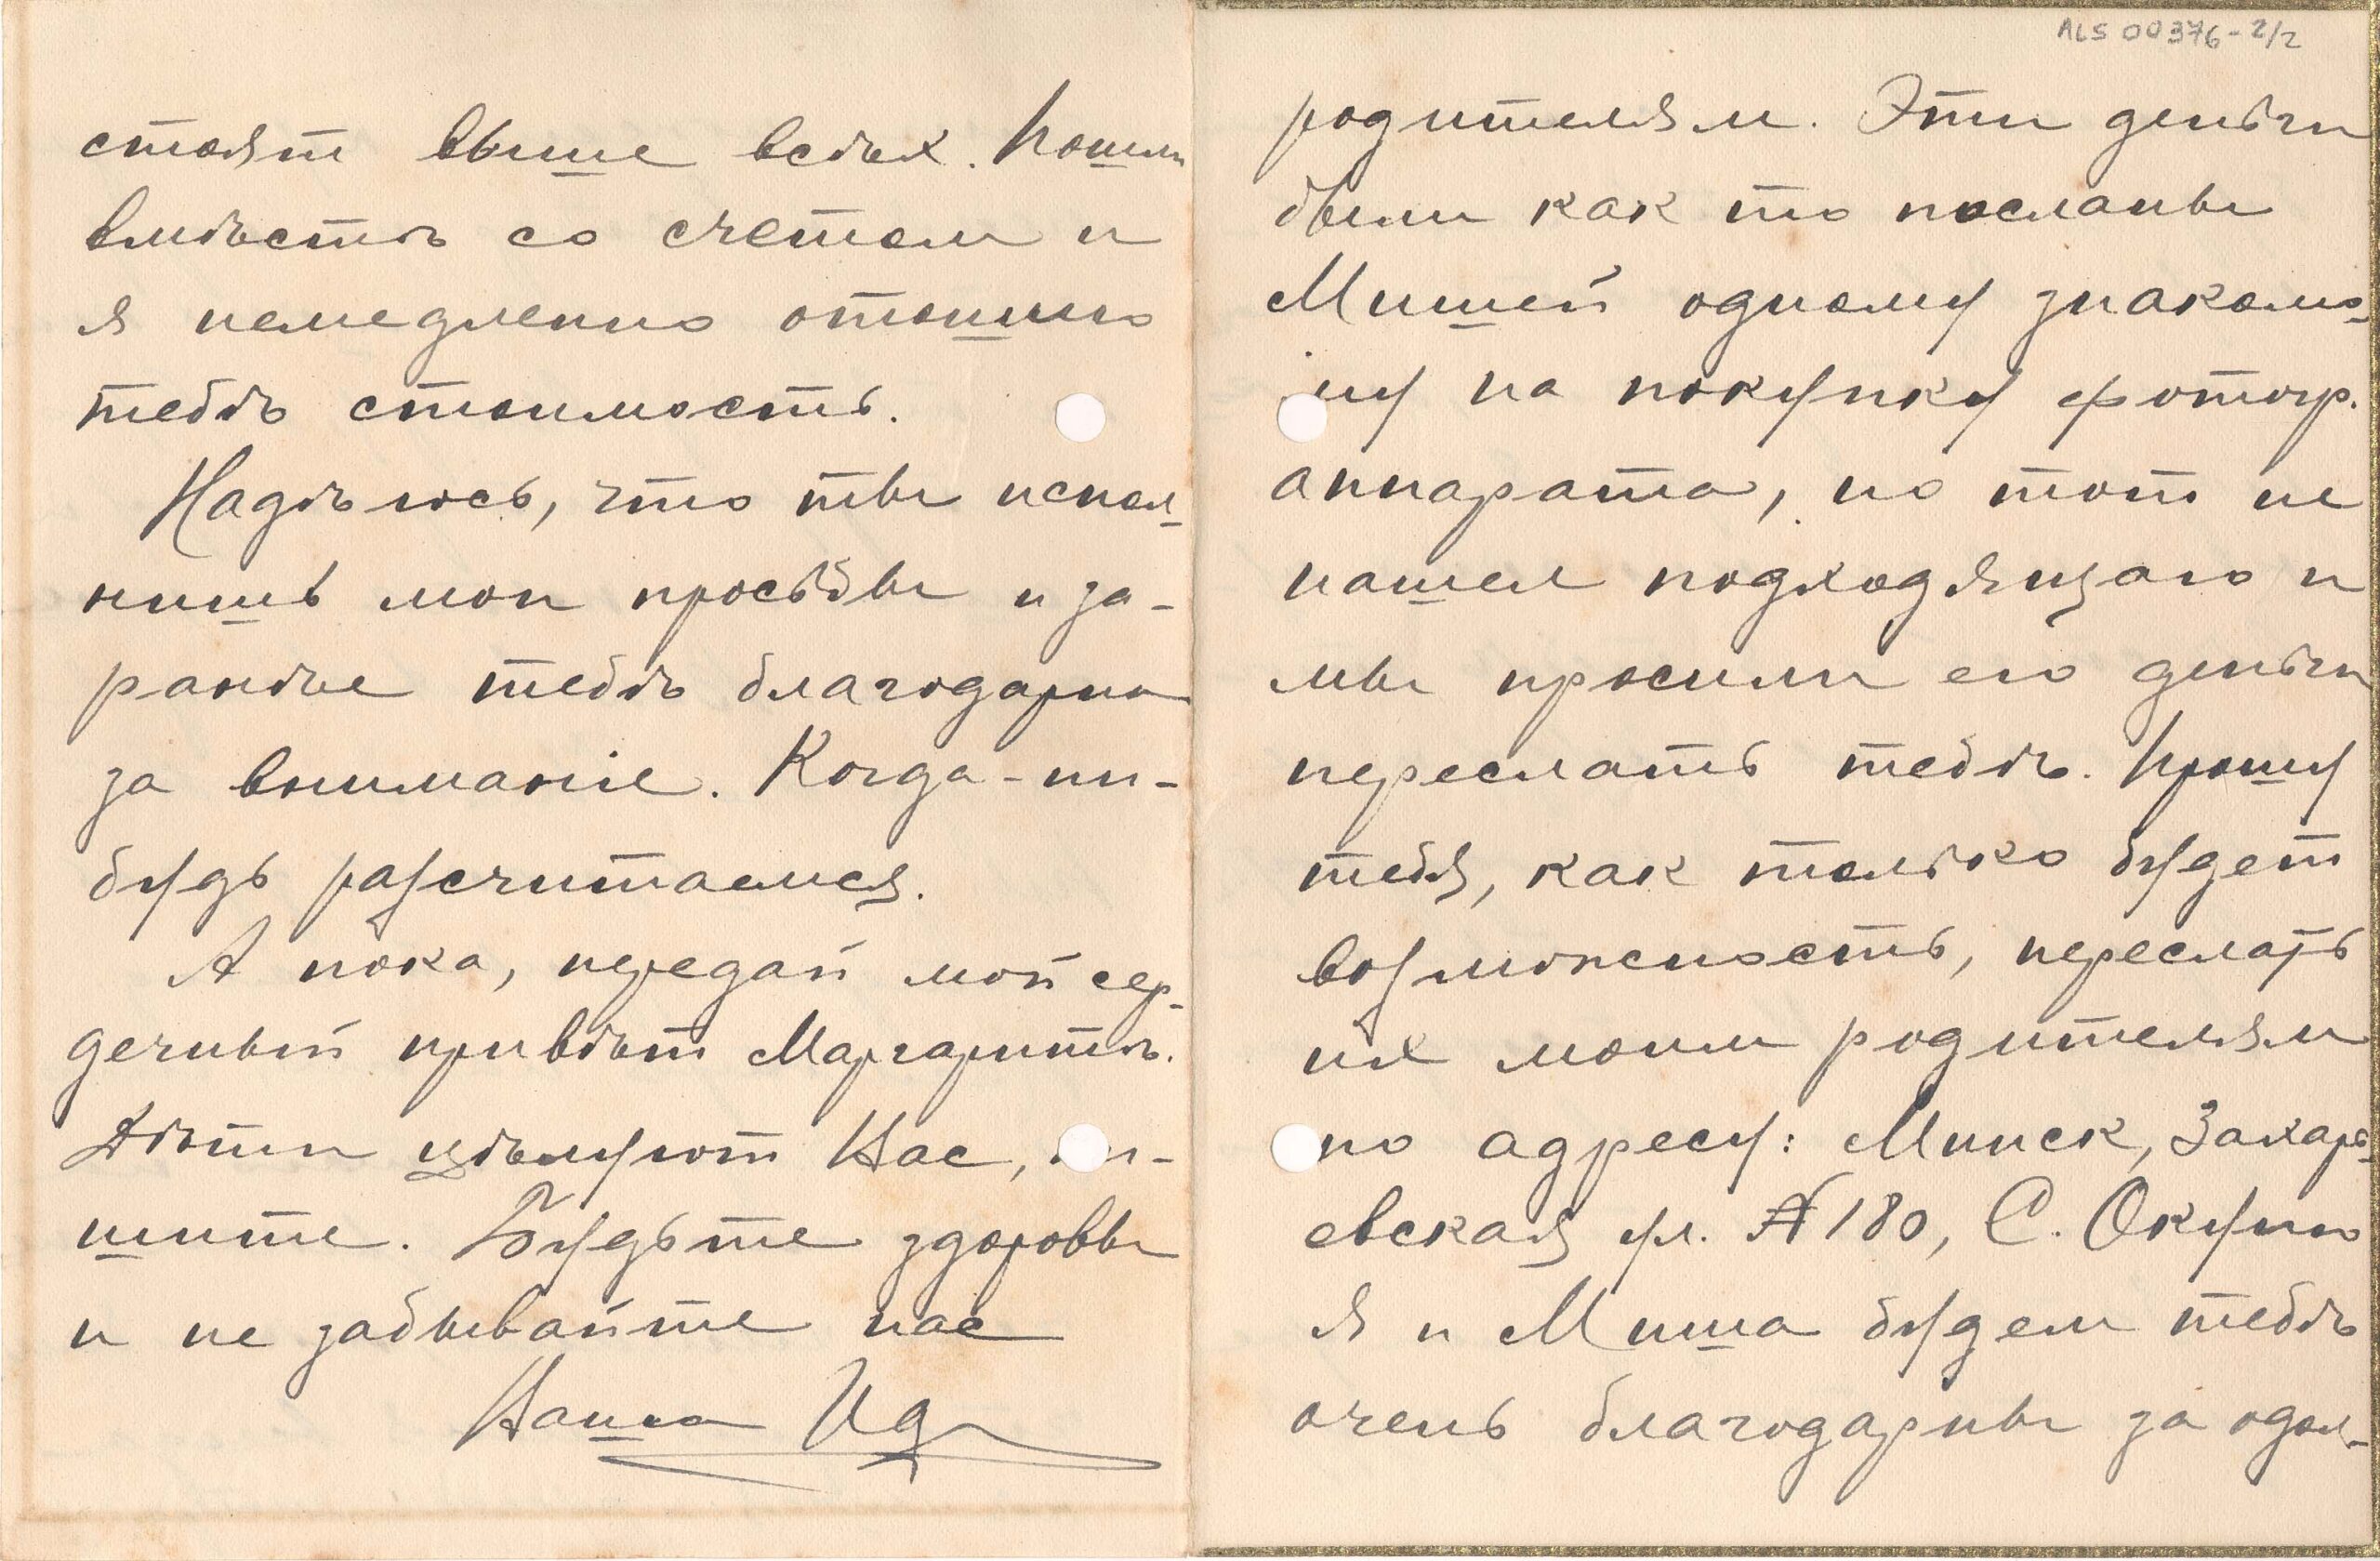 стоят выше всѣх. Пошли
вмѣстѣ со счетом и
я немедленно отошлю
тебѣ стоимость.
Надѣюсь, что ты испол-
нишь мои просьбы и за-
ранѣе тебѣ благодарна
за вниманіе. Когда-ни-
будь разсчитаемся.
А пока, передай мой сер-
дечный привѣт Маргаритѣ.
Дѣти цѣлуют Вас, пи-
шите. Будьте здоровы
и не забывайте нас
Ваша Ида
ALS 00376-2/2
родителям. Эти деньги
были как то посланы
Мишей одному знакомо-
му на покупку фотогр.
аппарата, но тот не
нашел подходящаго и
мы просили его деньги
переслать тебѣ. Прошу
тебя, как только будет
возможность, переслать
их моим родителям
по адресу: Минск, Захарь-
евская ул. № 180, С. Окунь
Я и Миша будем тебѣ
очень благодарны за одол-